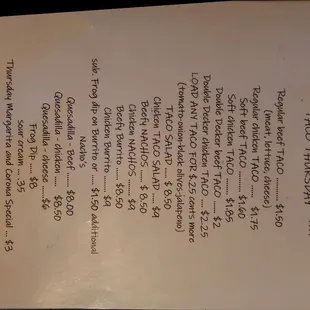 TACO THURSDAY
Regular beef TACO ...... $1.50
(meat, lettuce, cheese)
Regular chicken TACO ...... $1.75
Soft beef TACO ......... $1.60
Soft chicken TACO ...... $1.85
Double Decker beef TACO .... $2
Double Decker chicken TACO .... $2.25
LOAD ANY TACO FOR $.25 cents more
(tomato-onion-black olives-jalapeno)
TACO SALAD ..... $8.50
Chicken TACO SALAD .... $9
Beefy NACHOS ..... $8.50
Chicken NACHOS ....... $9
Beefy Burrito ..... $8.50
Chicken Burrito ....... $9
sub. Frog dip on Burrito or .... $1.50 additional
Nachos
Quesadilla - Beef ..... $8.00
Quesadilla - chicken .... $8.50
Quesadilla - cheese ....$6
Frog Dip ..... $8
sour cream .. .35
Thursday Margarita and Corona Special ... $3